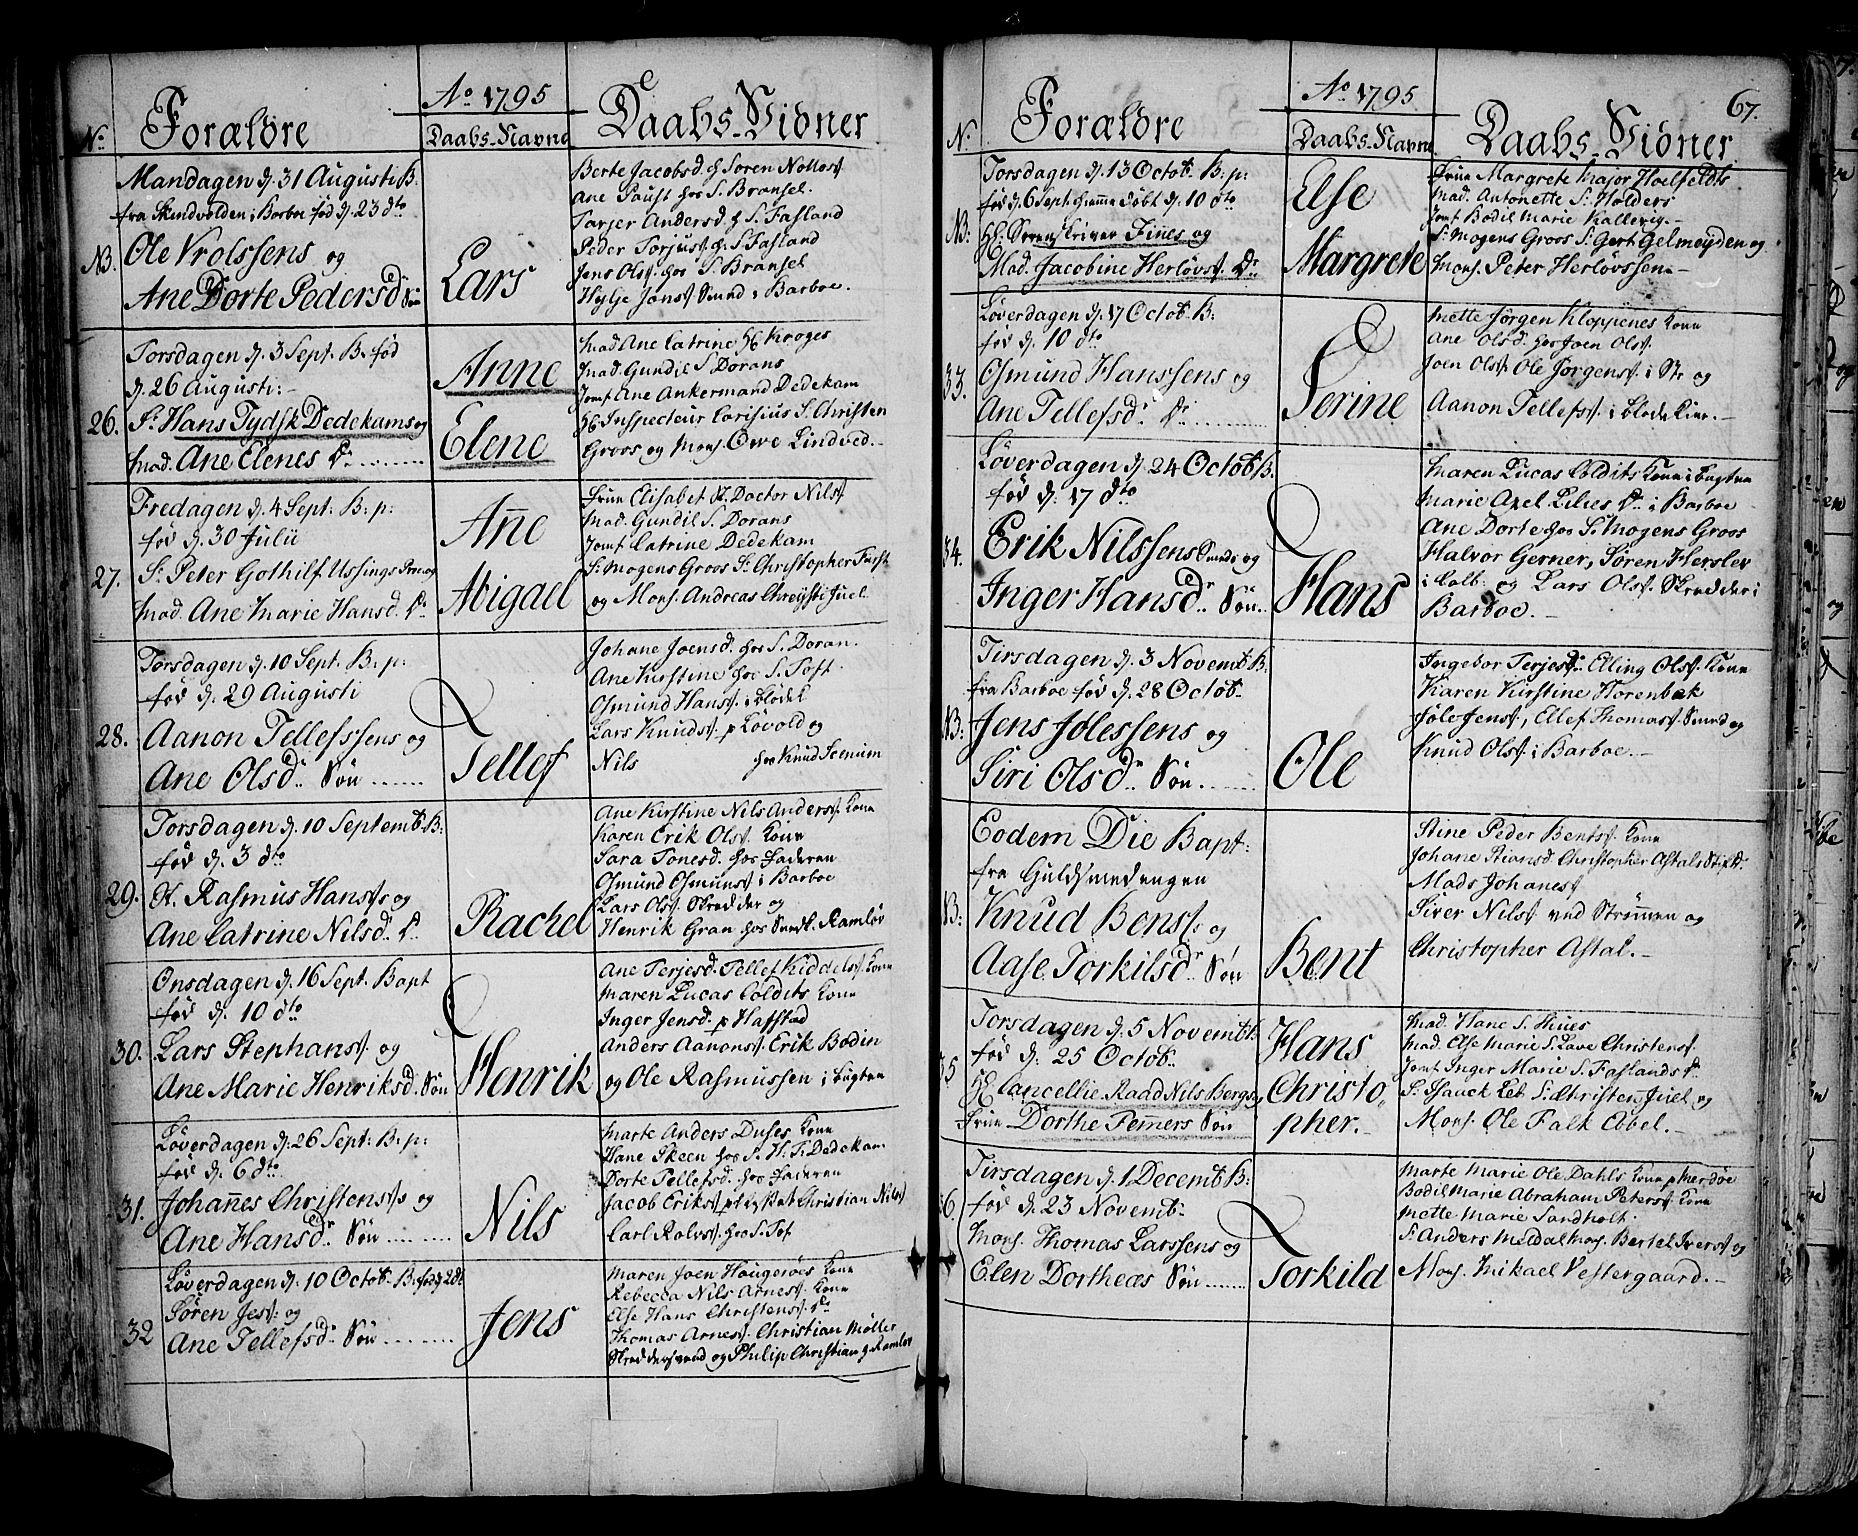 Ao 1795
No Forældre
Daabs-Navne
Daabs-Vidner
Mandagen d. 31 Augusti B.
fra Skindvolden i Barboe fød d. 23 dto
NB. Ole Vrolssens og
Ane Dorte Pedersdr Søn
Lars
Berte Jacobsd. h Søren Nottos
Ane Paust hos S. Bransel.
Tarjer Andersd. h S. Fasland
Peder Torjuss. h S. Fasland
Jens Ols. hos S. Bransel
Hylje Jons. Smed i Barboe.
Torsdagen d. 3 Sept. B. fød
d. 26 Augusti:-
26. Sr. Hans Tydsk Dedekams og
Mad. Ane Elenes Dr
Anne
Elene
Mad Ane Catrine Kroges
Mad. Gundil S Dorans
Jomf Ane Ankermand Dedekam
Inspecteur Carisius S. Christen
Groos og Mons. Owe Lindved.-
Fredagen d. 4 Sept: B: p:
fød d. 30 Julii
27. Sr. Peter Gothilf Ussings og
Mad. Ane Marie Hansd. Dr
Ane
Abigael
Frue Elisabet Doctor Nils
Mad. Gundil S. Dorans
Jomf Catrine Dedekam
Sr. Mogens Groos Sr. Christopher Furst
og Mons. Andreas Chrysti Juel
Torsdagen d. 10 Sept. B. p:
fød d. 29 Augusti
28. Aanon Tellefssens og
Ane Olsdr. Søn
Tellef
Johane Joensd. hos S. Doran.
Ane Kirstine hos S. Toft.
Osmund Hans. i Blødek
Lars Knuds. p Løvold og
Nils hos Knud
Torsdagen d. 10 Septemb. B:
fød d. 3 dto
29. Rasmus Hans. og
Ane Catrine Nilsd. Dr
Rachel
Ane Kirstine Nils Anders. Kone
Karen Erik Ols. Kone
Sara Tonesd. hos Faderen
Osmund Osmuns. i Barboe
Lars Ols. Skredder og
Henrik Gran hos Ramløv
Onsdagen d. 16 Sept. Bapt
fød d. 10 dto
30. Lars Stephans. og
Ane Marie Henriksd. Søn
Henrik
Ane Terjesd. Tellef Kiddels. Kone
Maren Lucas Coldits Kone
Inger Jensd. p Hafstad
Anders Aanons. Erik Bodin
og Ole Rasmussen i Bugten
Løverdagen d. 26 Sept: B. p:
fød d. 6 dto
31. Johannes Christens. og
Ane Hansdr. Søn
Nils
Marte Anders Duses Kone
Hane Skeen hos S. H. T. Dedekam
Dorte Tellefsd. hos Faderen
Jacob Eriks. Christian Nils
Carl Rolvs. hos S. Tof
Løverdagen d. 10 Octob. B. fød d 2 dt
32 Søren Jess. og
Ane Tellefsdr. Søn
Jens
Maren Joen Hougerøes Kone
Rebecca Nils Arnes. Kone
Else Hans Christens. Dr
Thomas Arnes. Christian Møller
Skreddersvend og Philip Christian h Ramløv
67.
Ao 1795
No Forældre
Daabs-Navne
Daabs-Vidner
Torsdagen d. 13 Octob. B: p:
fød d. 6 Sept. hiemme døbt d. 10 dto
NB: Sorenskriver Fines og
Mad. Jacobine Herløvs. Dr
Else
Margrete
Frue Margrete Major Hoelfeldts
Mad. Antonette S. Holders
Jomf Bodil Marie Kallevig.-
Sr. Mogens Groos Sr. Gert Gelmeyden og
Mons. Peter Herløvssen-
Løverdagen d. 17 Octob. B:
fød d. 10 dto
33. Osmund Hanssens og
Ane Tellefsdr. Dr
Serine
Mette Jørgen Kloppenes Kone
Ane Olsd. hos Joen Ols.
Joen Ols. Ole Jørgens. i Str og
Aanon Tellefs. i Blødekier.-
Løverdagen d. 24 Octob. B.
fød d. 17 dto
34. Erik Nilssens Smeds og
Inger Hansdr. Søn
Hans
Maren Lucas Coldits Kone i Bugten
Marie Axel Lilies Dr. i Barboe
Ane Dorte hos Sr. Mogens Groos
Halvor Gerner, Søren Hersler
i Colb. og Lars Ols. Skredder i
Barboe.-
Tirsdagen d. 3 Novemb. B.
fra Barboe fød d. 28 Octob.
NB: Jens Jølessens og
Siri Olsdr. Søn.
Ole
Ingebor Terjesdr. Elling Ols. Kone
Karen Kirstine Horenbek
Jøle Jens., Ellef Thomas. Smed og
Knud Ols. i Barboe.-
Eodem Die Bapt:
fra Guldsmedengen
NB: Knud Bens. og
Aase Torkilsdr. Søn
Bent
Stine Peder Bents. Kone
Johane Stiansd. Christopher Astals
Mads Johanes
Siver Nils. ved Strømmen og
Christopher Astal.-
Torsdagen d. 5 Novemb. B.
fød d. 25 Octob.
35 Cancellie Raad Nils Bergs,
Frue Dorthe Femers Søn
Hans
Christo-
pher.-
Mad. Hane S. Thues
Mad. Else Marie S. Lave Christens.
Jomf Inger Marie S. Faslands Dr
Sr. Isaack Let Sr. Christen Juel og
Mons. Ole Falk Ebbel.-
Tirsdagen d. 1 Decemb. B:
fød d. 23 Novemb.
36. Mons. Thomas Larssens og
Elen Dortheæs Søn
Torkild
Marte Marie Ole Dahls Kone p Merdøe
Bodil Marie Abraham Peters. Kone
Mette Marie Sandholt.
Sr. Anders Meldal Mons. Bertel Ivers. og
Mons. Mikael Vestergaard.-